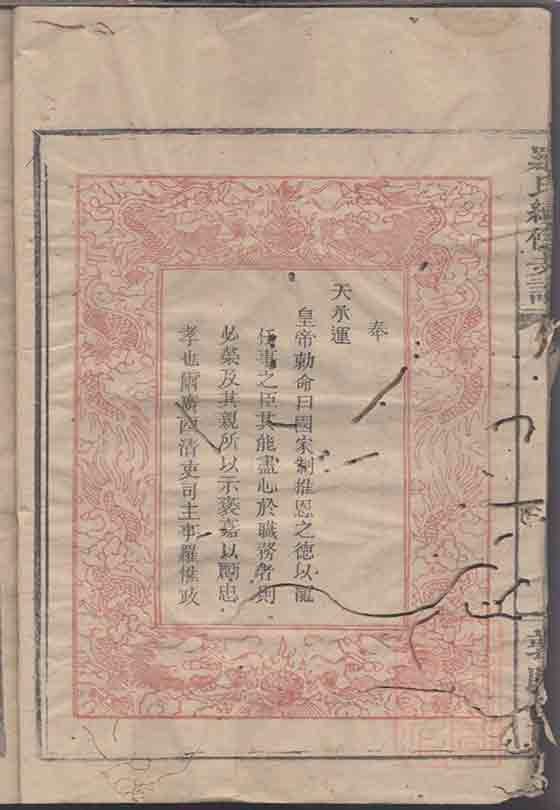 奉
天承運
皇帝勅命曰國家制推恩之德以寵
任事之臣其能盡心於職務者則
必榮及其親所以示褒嘉以勵忠
孝也爾廣西清吏司主事羅惟政
氏續修支譜